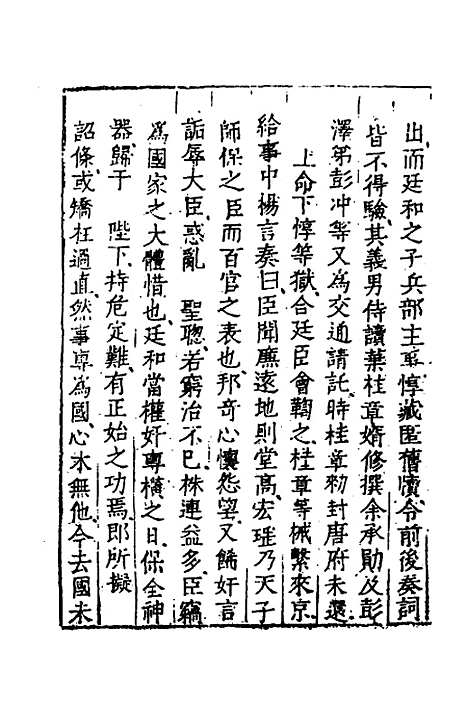 出而廷和之子兵部主事惇藏匿舊牘令前後奏詞
皆不得驗其義男侍讀葉桂章婿修撰余承勛及彭
澤弟彭冲等又為交通請託時桂章勑封唐府未還
上命下惇等獄合廷臣會鞫之桂章等械繫來京
給事中楊言奏曰臣聞廉遠地則堂高宏瑤乃天子
師保之臣而百官之表也邦奇心懷怨望又餙奸言
詬辱大臣惑亂 聖聰若窮治不已株連益多臣竊
為國家之大體惜也廷和當權奸專橫之日保全神
器歸于 陛下持危定難有正始之功焉即所擬
詔條或矯枉過直然事專為國心木無他今去國未